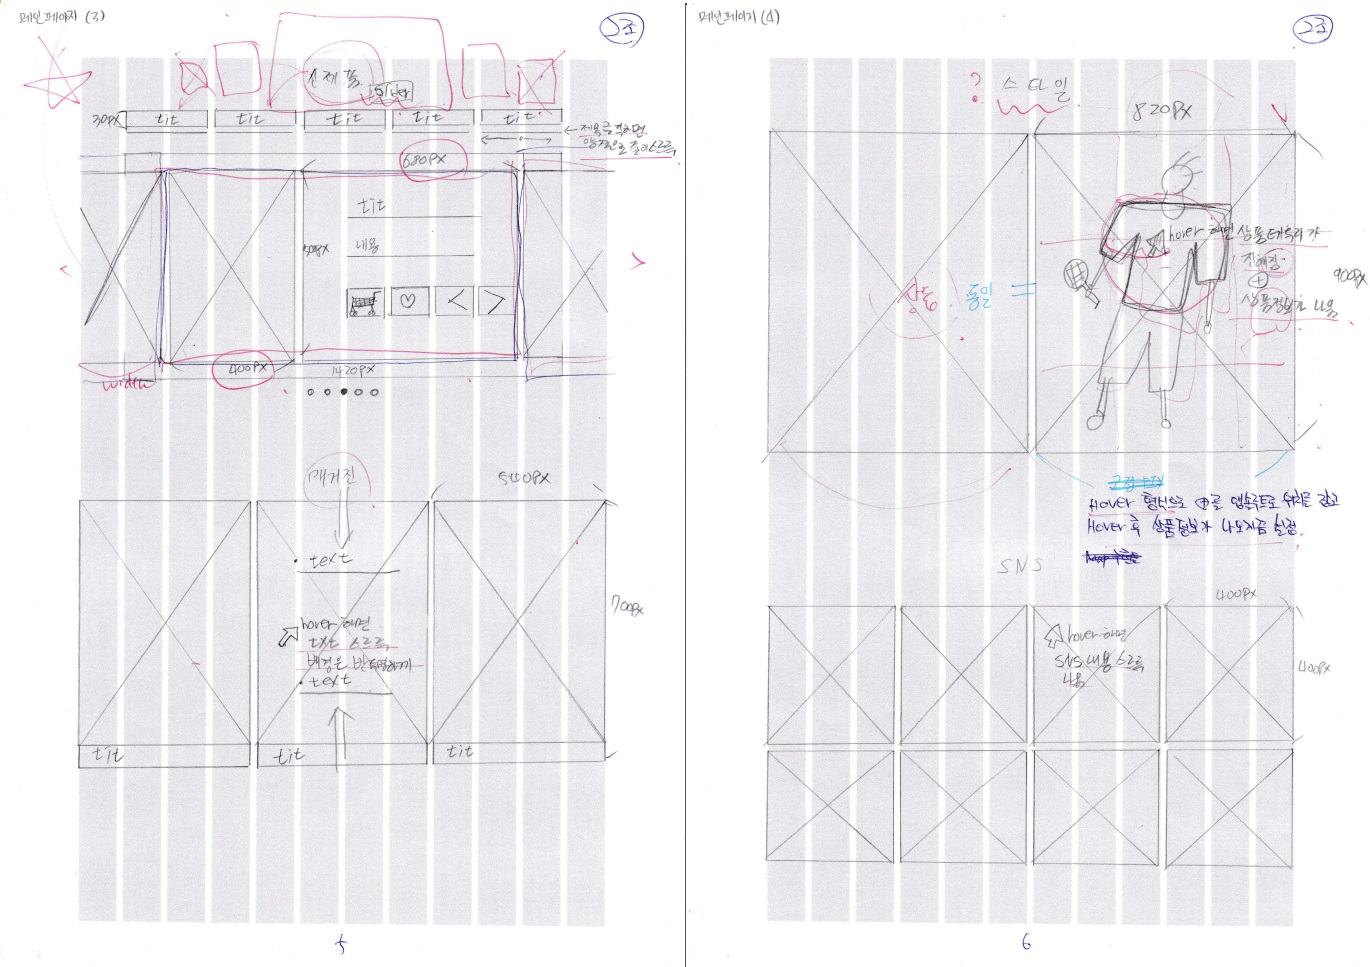 메인페이지 (3)
2조
신제품
30PX
tit
tit
tit
tit
tit
제목클릭하면
680PX
tit
내용
500PX
400PX
1420PX
width
매거진
500PX
text
hover 하면
txt 스르륵
배경은 반투명해지기
text
700PX
tit
tit
tit
5
메인페이지 (4)
2조
? 스타일
820PX
hover 하면 상품테두리가
진해짐
+
상품정보가 나옴
900PX
상동
동일 =
Hover 형식으로
Hover 후 상품정보가 나오지끔 설정.
SNS
400PX
hover하면
SNS 내용 스르륵
나옴
400PX
6